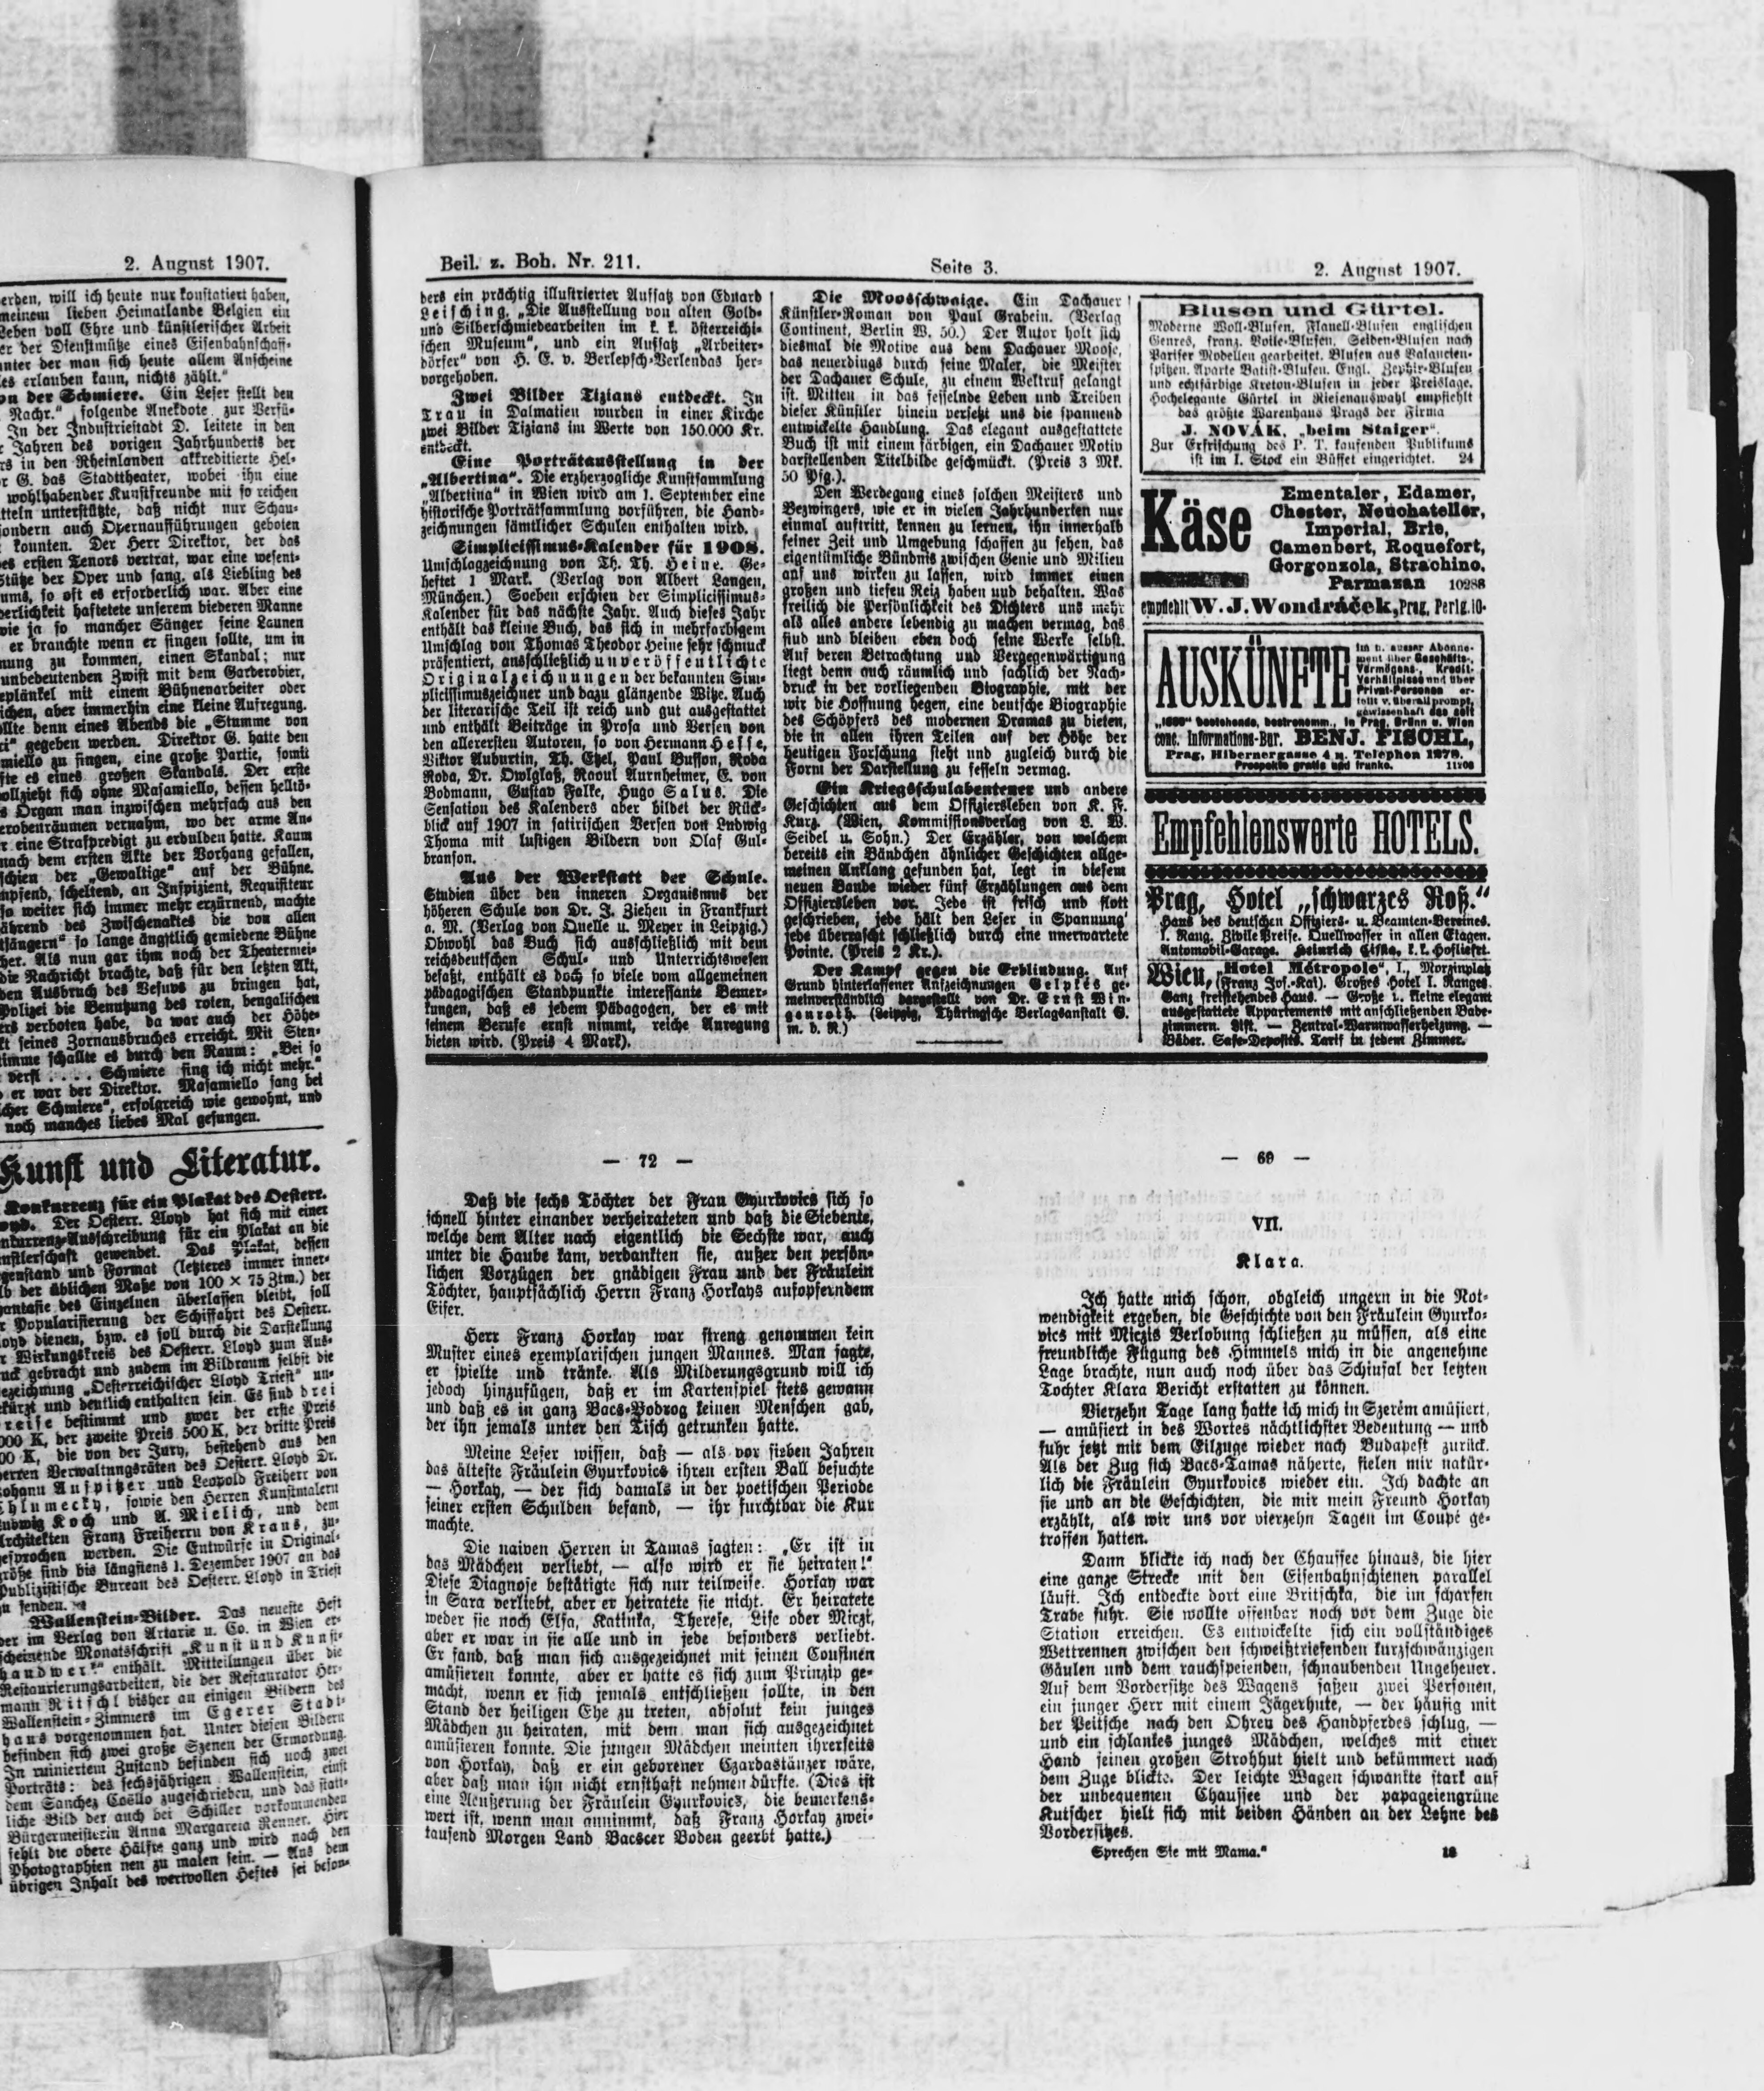 2. August 1907.
erden, will ich heute nur konstatiert haben,
meinem lieben Heimatlande Belgien ein
Leben voll Ehre und künstlerischer Arbeit
er der Dienstmütze eines Eisenbahnschaff-
unter der man sich heute allem Anscheine
es erlauben kann, nichts zählt.“
on der Schmiere. Ein Leser stellt den
Nachr.“ folgende Anekdote zur Verfü-
In der Industriestadt D. leitete in den
Jahren des vorigen Jahrhunderts der
rs in den Rheinlanden akkreditierte Hel-
r G. das Stadttheater, wobei ihn eine
wohlhabender Kunstfreunde mit so reichen
tteln unterstützte, daß nicht nur Schau-
sondern auch Opernaufführungen geboten
konnten. Der Herr Direktor, der das
es ersten Tenors vertrat, war eine wesent-
Stütze der Oper und sang, als Liebling des
ums, so oft es erforderlich war. Aber eine
derlichkeit haftetete unserem biederen Manne
wie ja so mancher Sänger seine Launen
er brauchte wenn er singen sollte, um in
mung zu kommen, einen Skandal; nur
unbedeutenden Zwist mit dem Garderobier,
eplänkel mit einem Bühnenarbeiter oder
ichen, aber immerhin eine kleine Aufregung.
ollte denn eines Abends die „Stumme von
ci“ gegeben werden. Direktor G. hatte den
miello zu singen, eine große Partie, somit
fte es eines großen Skandals. Der erste
vollzieht sich ohne Masamiello, dessen helltö-
s Organ man inzwischen mehrfach aus den
erobenräumen vernahm, wo der arme An-
r eine Strafpredigt zu erdulden hatte. Kaum
nach dem ersten Akte der Vorhang gefallen,
schien der „Gewaltige“ auf der Bühne.
mpfend, scheltend, an Inspizient, Requisiteur
so weiter sich immer mehr erzürnend, machte
ährend des Zwischenaktes die von allen
tsängern“ so lange ängstlich gemiedene Bühne
cher. Als nun gar ihm noch der Theatermei-
die Nachricht brachte, daß für den letzten Akt,
den Ausbruch des Vesuvs zu bringen hat,
Polizei die Benutzung des roten, bengalischen
ers verboten habe, da war auch der Höhe-
kt seines Zornausbruches erreicht. Mit Sten-
timme schallte es durch den Raum: „Bei so
verfl . . . . Schmiere sing ich nicht mehr.“
er war der Direktor. Masamiello sang bei
cher Schmiere“, erfolgreich wie gewohnt, und
noch manches liebes Mal gesungen.
Kunst und Literatur.
Konkurrenz für ein Plakat des Oesterr.
oyd. Der Oesterr. Lloyd hat sich mit einer
nkurrenz-Ausschreibung für ein Plakat an die
nstlerschaft gewendet. Das Plakat, dessen
genstand und Format (letzteres immer inner-
lb der üblichen Maße von 100 × 75 Ztm.) der
antasie des Einzelnen überlassen bleibt, soll
r Popularisierung der Schiffahrt des Oesterr.
loyd dienen, bzw. es soll durch die Darstellung
r Wirkungskreis des Oesterr. Lloyd zum Aus-
uck gebracht und zudem im Bildraum selbst die
ezeichnung „Oesterreichischer Lloyd Triest“ un-
kürzt und deutlich enthalten sein. Es sind drei
reise bestimmt und zwar der erste Preis
000 K, der zweite Preis 500 K, der dritte Preis
00 K, die von der Jury, bestehend aus den
erren Verwaltungsräten des Oesterr. Lloyd Dr.
ohann Auspitzer und Leopold Freiherr von
hlumecky, sowie den Herren Kunstmalern
udwig Koch und A. Mielich, und dem
Architekten Franz Freiherrn von Kraus, zu-
gesprochen werden. Die Entwürfe in Original-
größe sind bis längstens 1. Dezember 1907 an das
Publizistische Bureau des Oesterr. Lloyd in Triest
zu senden.
Wallenstein-Bilder. Das neueste Heft
der im Verlag von Artarie u. Co. in Wien er-
scheinende Monatsschrift „Kunst und Kunst-
handwerk“ enthält. Mitteilungen über die
Restaurierungsarbeiten, die der Restaurator Her-
mann Ritschl bisher an einigen Bildern des
Wallenstein-Zimmers im Egerer Stadt-
haus vorgenommen hat. Unter diesen Bildern
befinden sich zwei große Szenen der Ermordung.
In ruiniertem Zustand befinden sich noch zwei
Porträts: des sechsjährigen Wallenstein, einst
dem Sanchez Coëllo zugeschrieben, und das statt-
liche Bild der auch bei Schiller vorkommenden
Bürgermeisterin Anna Margareta Renner. Hier
fehlt die obere Hälfte ganz und wird nach den
Photographien neu zu malen sein. — Aus dem
übrigen Inhalt des wertvollen Heftes sei beson-
Beil. z. Boh. Nr. 211.
Seite 3.
2. August 1907.
ders ein prächtig illustrierter Aufsatz von Eduard
Leisching, „Die Ausstellung von alten Gold-
und Silberschmiedearbeiten im k. k. österreichi-
schen Museum“, und ein Aufsatz „Arbeiter-
dörfer“ von H. E. v. Berlepsch-Verlendas her-
vorgehoben.
Zwei Bilder Tizians entdeckt. In
Trau in Dalmatien wurden in einer Kirche
zwei Bilder Tizians im Werte von 150.000 Kr.
entdeckt.
Eine Porträtausstellung in der
„Albertina“. Die erzherzogliche Kunstsammlung
„Albertina“ in Wien wird am 1. September eine
historische Porträtsammlung vorführen, die Hand-
zeichnungen sämtlicher Schulen enthalten wird.
Simplicissimus-Kalender für 1908.
Umschlagzeichnung von Th. Th. Heine. Ge-
heftet 1 Mark. (Verlag von Albert Langen,
München.) Soeben erschien der Simplicissimus-
Kalender für das nächste Jahr. Auch dieses Jahr
enthält das kleine Buch, das sich in mehrfarbigem
Umschlag von Thomas Theodor Heine sehr schmuck
präsentiert, ausschließlich unveröffentlichte
Originalzeichnungen der bekannten Sim-
plicissimuszeichner und dazu glänzende Witze. Auch
der literarische Teil ist reich und gut ausgestattet
und enthält Beiträge in Prosa und Versen von
den allerersten Autoren, so von Hermann Hesse,
Viktor Auburtin, Th. Etzel, Paul Busson, Roda
Roda, Dr. Owlglaß, Raoul Aurnheimer, E. von
Bodmann, Gustav Falke, Hugo Salus. Die
Sensation des Kalenders aber bildet der Rück-
blick auf 1907 in satirischen Versen von Ludwig
Thoma mit lustigen Bildern von Olaf Gul-
branson.
Aus der Werkstatt der Schule.
Studien über den inneren Organismus der
höheren Schule von Dr. J. Ziehen in Frankfurt
a. M. (Verlag von Quelle u. Meyer in Leipzig.)
Obwohl das Buch sich ausschließlich mit dem
reichsdeutschen Schul- und Unterrichtswesen
befaßt, enthält es doch so viele vom allgemeinen
pädagogischen Standpunkte interessante Bemer-
kungen, daß es jedem Pädagogen, der es mit
seinem Berufe ernst nimmt, reiche Anregung
bieten wird. (Preis 4 Mark).
Die Moosschwaige. Ein Dachauer
Künstler-Roman von Paul Grabein. (Verlag
Continent, Berlin W. 50.) Der Autor holt sich
diesmal die Motive aus dem Dachauer Moose,
das neuerdings durch seine Maler, die Meister
der Dachauer Schule, zu einem Weltruf gelangt
ist. Mitten in das fesselnde Leben und Treiben
dieser Künstler hinein versetzt uns die spannend
entwickelte Handlung. Das elegant ausgestattete
Buch ist mit einem färbigen, ein Dachauer Motiv
darstellenden Titelbilde geschmückt. (Preis 3 Mk.
50 Pfg.).
Den Werdegang eines solchen Meisters und
Bezwingers, wie er in vielen Jahrhunderten nur
einmal auftritt, kennen zu lernen, ihn innerhalb
seiner Zeit und Umgebung schaffen zu sehen, das
eigentümliche Bündnis zwischen Genie und Milieu
auf uns wirken zu lassen, wird immer einen
großen und tiefen Reiz haben und behalten. Was
freilich die Persönlichkeit des Dichters uns mehr
als alles andere lebendig zu machen vermag, das
sind und bleiben eben doch seine Werke selbst.
Auf deren Betrachtung und Vergegenwärtigung
liegt denn auch räumlich und sachlich der Nach-
druck in der vorliegenden Biographie, mit der
wir die Hoffnung hegen, eine deutsche Biographie
des Schöpfers des modernen Dramas zu bieten,
die in allen ihren Teilen auf der Höhe der
heutigen Forschung steht und zugleich durch die
Form der Darstellung zu fesseln vermag.
Ein Kriegsschulabenteuer und andere
Geschichten aus dem Offiziersleben von K. F.
Kurz. (Wien, Kommissionsverlag von L. W.
Seidel u. Sohn.) Der Erzähler, von welchem
bereits ein Bändchen ähnlicher Geschichten allge-
meinen Anklang gefunden hat, legt in diesem
neuen Bande wieder fünf Erzählungen aus dem
Offiziersleben vor. Jede ist frisch und flott
geschrieben, jede hält den Leser in Spannung
jede überrascht schließlich durch eine unerwartete
Pointe. (Preis 2 Kr.).
Der Kampf gegen die Erblindung. Auf
Grund hinterlassener Aufzeichnungen Gelpkes ge-
meinverständlich dargestellt von Dr. Ernst Win-
genroth. (Leipzig, Thüringische Verlagsanstalt G.
m. b. H.)
Blusen und Gürtel.
Moderne Woll-Blusen, Flanell-Blusen englischen
Genres, franz. Voile-Blusen, Seiden-Blusen nach
Pariser Modellen gearbeitet. Blusen aus Valancien-
spitzen. Aparte Batist-Blusen. Engl. Zephir-Blusen
und echtfärbige Kreton-Blusen in jeder Preislage.
Hochelegante Gürtel in Riesenauswahl empfiehlt
das größte Warenhaus Prags der Firma
J. NOVÁK, „beim Staiger“.
Zur Erfrischung des P. T. kaufenden Publikums
ist im I. Stock ein Büffet eingerichtet. 24
Käse
Ementaler, Edamer,
Chester, Neuchateller,
Imperial, Brie,
Camenbert, Roquefort,
Gorgonzola, Strachino,
Parmasan 10288
empfiehlt W. J. Wondráček, Prag, Perlg. 10·
AUSKÜNFTE
im u. ausser Abonne-
ment über Geschäfts-,
Vermögens-, Kredit-
Verhältnisse und über
Privat-Personen er-
teilt v. überall prompt,
gewissenhaft das seit
„1869“ bestehende, bestrenomm., in Prag, Brünn u. Wien
conc. Informations-Bur. BENJ. FISCHL,
Prag, Hibernergasse 4 n. Telephon 1278.
Prospekte gratis und franko. 11208
Empfehlenswerte HOTELS.
Prag, Hotel „schwarzes Roß.“
Haus des deutschen Offiziers- u. Beamten-Vereines.
I. Rang. Zivile Preise. Quellwasser in allen Etagen.
Automobil-Garage. Heinrich Liska, k. k. Hoflieferl.
Wien, „Hotel Métropole“, I., Morzinplatz
(Franz Jos.-Kai). Großes Hotel I. Ranges.
Ganz freistehendes Haus. — Große u. kleine elegant
ausgestattete Appartements mit anschließenden Bade-
zimmern. Lift. — Zentral-Warmwasserheizung. —
Bäder. Safe-Deposits. Tarif in jedem Zimmer.
— 72 —
Daß die sechs Töchter der Frau Gyurkovics sich so
schnell hinter einander verheirateten und daß die Siebente,
welche dem Alter nach eigentlich die Sechste war, auch
unter die Haube kam, verdankten sie, außer den persön-
lichen Vorzügen der gnädigen Frau und der Fräulein
Töchter, hauptsächlich Herrn Franz Horkays aufopferndem
Eifer.
Herr Franz Horkay war streng genommen kein
Muster eines exemplarischen jungen Mannes. Man sagte,
er spielte und tränke. Als Milderungsgrund will ich
jedoch hinzufügen, daß er im Kartenspiel stets gewann
und daß es in ganz Bacs-Bodrog keinen Menschen gab,
der ihn jemals unter den Tisch getrunken hatte.
Meine Leser wissen, daß — als vor sieben Jahren
das älteste Fräulein Gyurkovics ihren ersten Ball besuchte
— Horkay, — der sich damals in der poetischen Periode
seiner ersten Schulden befand, — ihr furchtbar die Kur
machte.
Die naiven Herren in Tamas sagten: „Er ist in
das Mädchen verliebt, — also wird er sie heiraten!“
Diese Diagnose bestätigte sich nur teilweise. Horkay war
in Sara verliebt, aber er heiratete sie nicht. Er heiratete
weder sie noch Elsa, Katinka, Therese, Lise oder Miczi,
aber er war in sie alle und in jede besonders verliebt.
Er fand, daß man sich ausgezeichnet mit seinen Cousinen
amüsieren konnte, aber er hatte es sich zum Prinzip ge-
macht, wenn er sich jemals entschließen sollte, in den
Stand der heiligen Ehe zu treten, absolut kein junges
Mädchen zu heiraten, mit dem man sich ausgezeichnet
amüsieren konnte. Die jungen Mädchen meinten ihrerseits
von Horkay, daß er ein geborener Czardastänzer wäre,
aber daß man ihn nicht ernsthaft nehmen dürfte. (Dies ist
eine Aeußerung der Fräulein Gyurkovics, die bemerkens-
wert ist, wenn man annimmt, daß Franz Horkay zwei-
tausend Morgen Land Bacscer Boden geerbt hatte.)
— 69 —
VII.
Klara.
Ich hatte mich schon, obgleich ungern in die Not-
wendigkeit ergeben, die Geschichte von den Fräulein Gyurko-
vics mit Miczis Verlobung schließen zu müssen, als eine
freundliche Fügung des Himmels mich in die angenehme
Lage brachte, nun auch noch über das Schiksal der letzten
Tochter Klara Bericht erstatten zu können.
Vierzehn Tage lang hatte ich mich in Szerém amüsiert,
— amüsiert in des Wortes nächtlichster Bedeutung — und
fuhr jetzt mit dem Eilzuge wieder nach Budapest zurück.
Als der Zug sich Bacs-Tamas näherte, fielen mir natür-
lich die Fräulein Gyurkovics wieder ein. Ich dachte an
sie und an die Geschichten, die mir mein Freund Horkay
erzählt, als wir uns vor vierzehn Tagen im Coupé ge-
troffen hatten.
Dann blickte ich nach der Chaussee hinaus, die hier
eine ganze Strecke mit den Eisenbahnschienen parallel
läuft. Ich entdeckte dort eine Britschka, die im scharfen
Trabe fuhr. Sie wollte offenbar noch vor dem Zuge die
Station erreichen. Es entwickelte sich ein vollständiges
Wettrennen zwischen den schweißtriefenden kurzschwänzigen
Gäulen und dem rauchspeienden, schnaubenden Ungeheuer.
Auf dem Vordersitze des Wagens saßen zwei Personen,
ein junger Herr mit einem Jägerhute, — der häufig mit
der Peitsche nach den Ohren des Handpferdes schlug, —
und ein schlankes junges Mädchen, welches mit einer
Hand seinen großen Strohhut hielt und bekümmert nach
dem Zuge blickte. Der leichte Wagen schwankte stark auf
der unbequemen Chaussee und der papageiengrüne
Kutscher hielt sich mit beiden Händen an der Lehne des
Vordersitzes.
Sprechen Sie mit Mama.“ 18